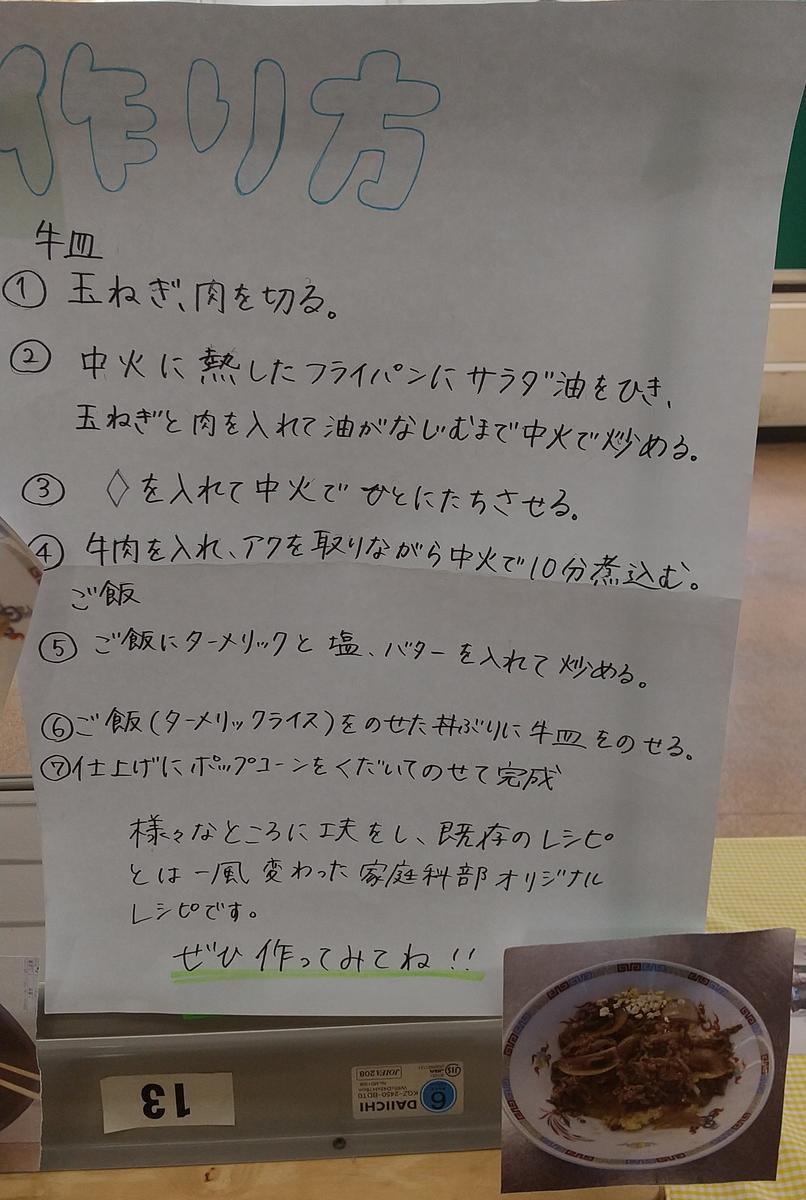 作り方
牛皿
① 玉ねぎ、肉を切る。
② 中火に熱したフライパンにサラダ油をひき、
玉ねぎと肉を入れて油がなじむまで中火で炒める。
③ ◇を入れて中火でひとにたちさせる。
④ 牛肉を入れ、アクを取りながら中火で10分煮込む。
ご飯
⑤ ご飯にターメリックと塩、バターを入れて炒める。
⑥ご飯(ターメリックライス)をのせた丼ぶりに牛皿をのせる。
⑦仕上げにポップコーンをくだいてのせて完成
様々なところに工夫をし、既存のレシピ
とは一風変わった家庭科部オリジナル
レシピです。
ぜひ作ってみてね!!
13
DAIICHI
6
JOIFA208
JIS